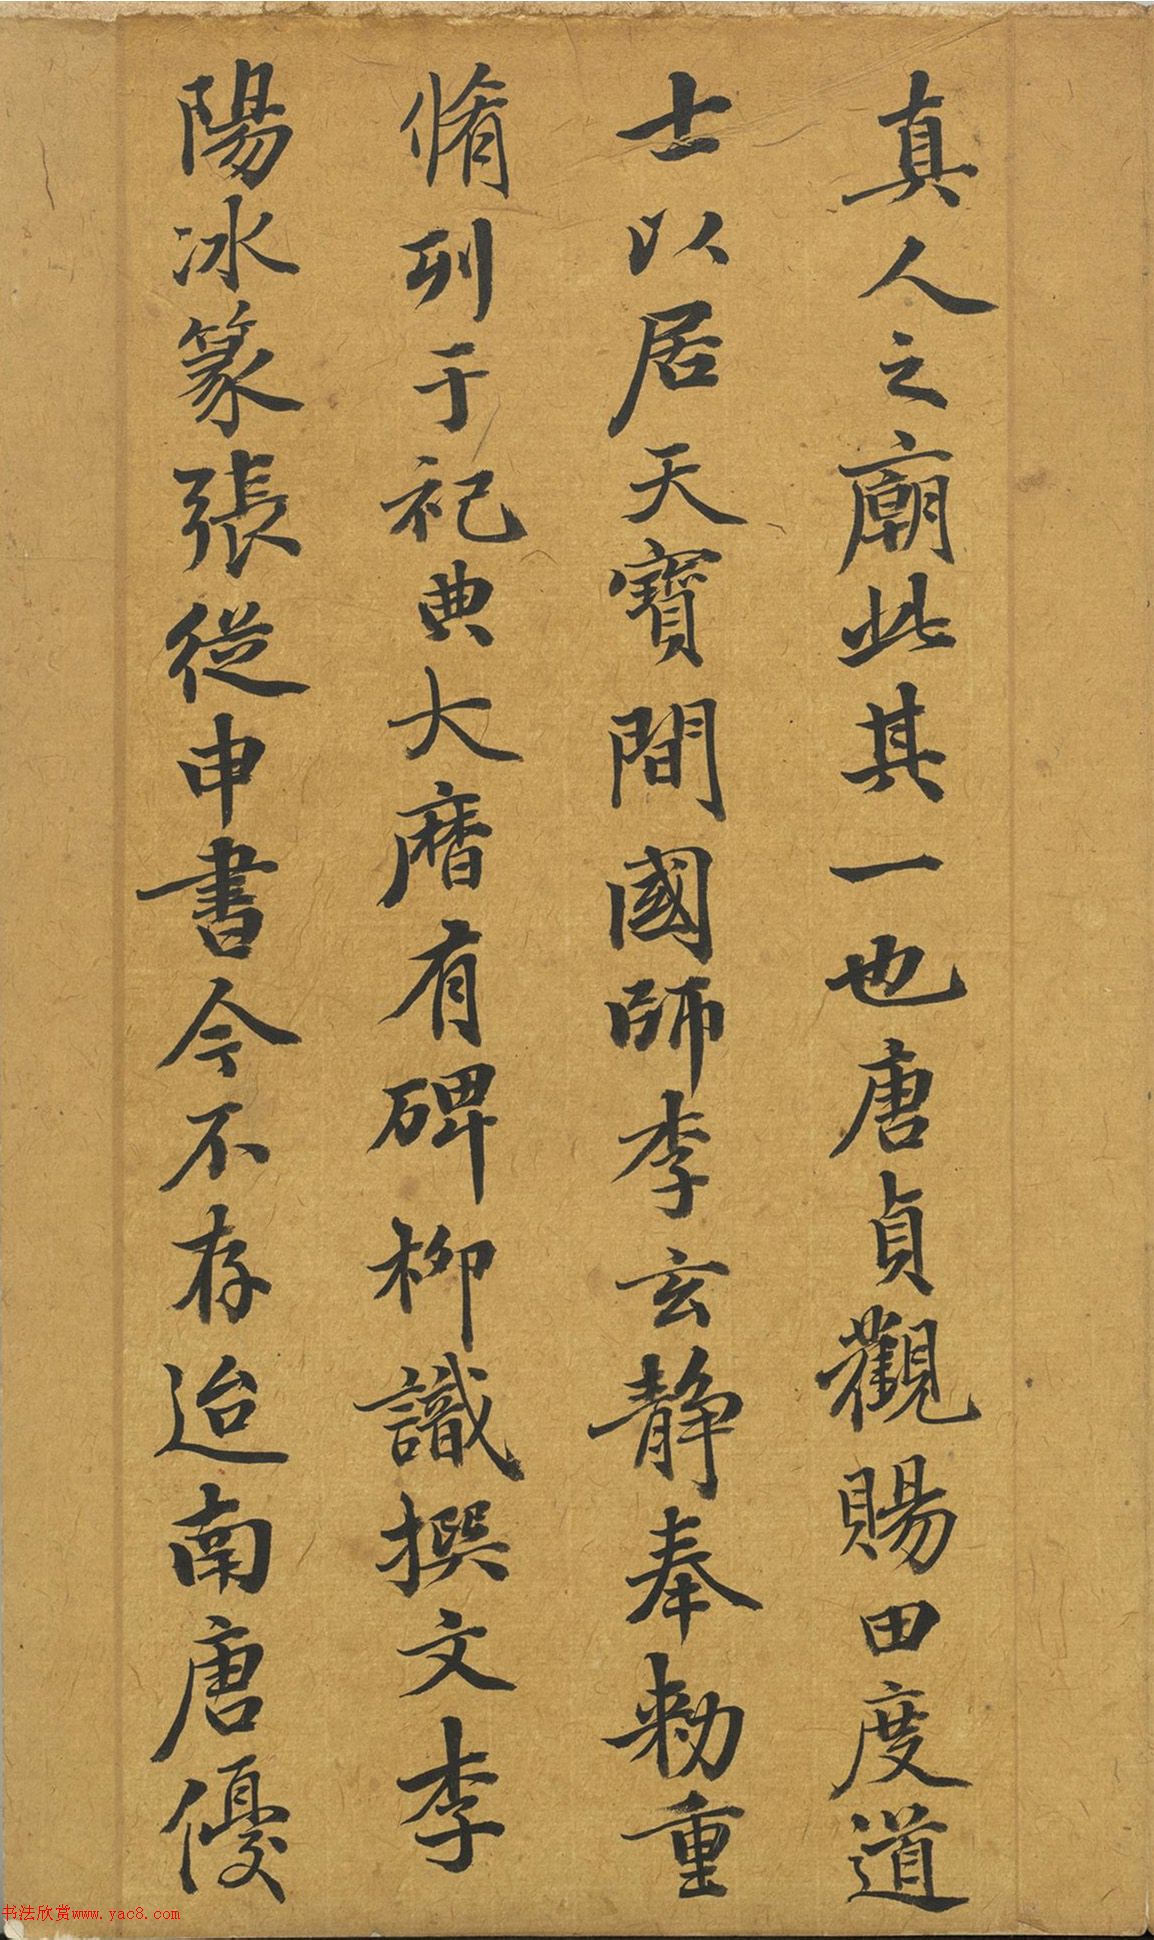 真人之廟此其一也唐貞觀賜田度道
士以居天寶間國師李玄静奉勑重
脩列于祀典大曆有碑柳識撰文李
陽冰篆張從申書今不存迨南唐優
书法欣赏www.yac8.com